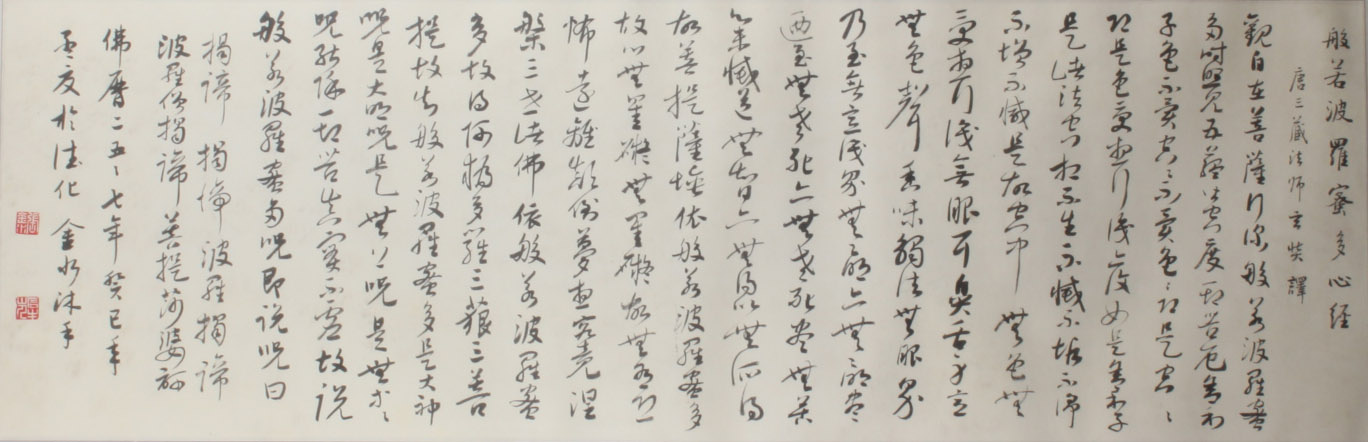 般若波羅蜜多心經
唐三藏法師玄奘譯
觀自在菩薩行深般若波羅蜜
多時照見五蘊皆空度一切苦厄舍利
子色不異空空不異色色即是空空
即是色受想行識亦復如是舍利子
是諸法空相不生不滅不垢不淨
不增不減是故空中無色無
受想行識無眼耳鼻舌身意
無色聲香味觸法無眼界
乃至無意識界無無明亦無無明盡
迺至無老死亦無老死盡無苦
集滅道無智亦無得以無所得
故菩提薩埵依般若波羅蜜多
故心無罣礙無罣礙故無有恐
怖遠離顛倒夢想究竟涅
槃三世諸佛依般若波羅蜜
多故得阿耨多羅三藐三菩
提故知般若波羅蜜多是大神
呪是大明呪是無上呪是無等等
呪能除一切苦真實不虛故說
般若波羅蜜多呪即說呪曰
揭諦 揭諦 波羅揭諦
波羅僧揭諦 菩提薩婆訶
佛曆二五五七年癸巳年
孟夏於德化 金水沐手